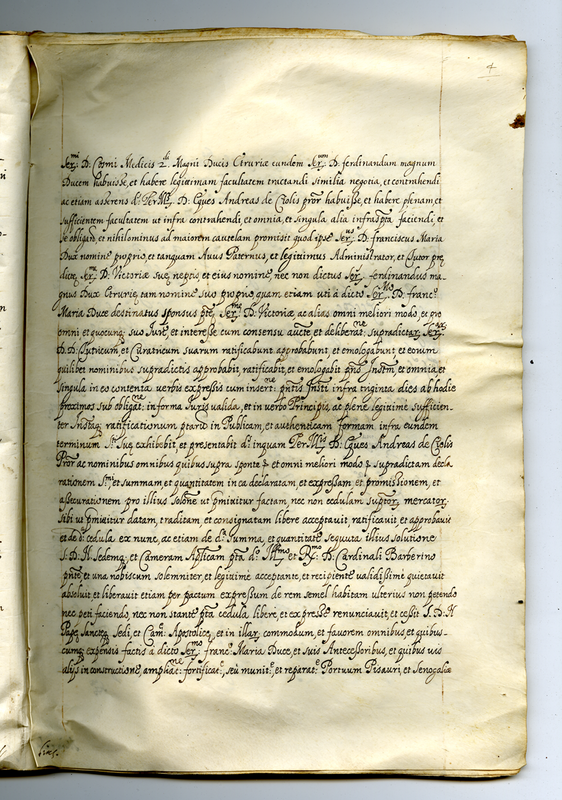 4
Ser.mi D. Cosmi Medicis 2.di Magni Ducis Etruriæ eundem Ser.um D. ferdinandum magnum
Ducem habuisse, et habere legitimam facultatem tractandi similia negotia, et contrahendi
ac etiam asserens d. Per Ill. D: Eques Andreas de Ciolis pror habuisse, et habere plenam et
sufficientem facultatem ut infra contrahendi et omnia, et singula alia infrascpta faciendi, et
se obligan, et nihilominus ad maiorem cautelam promisit quod ipse Ser.us D. franciscus Maria
Dux nomine proprio, et tanquam Auus Paternus, et legitimus Administrator, et Tutor præ
dictæ Ser.mæ D. Victoriæ suæ neptis et eius nomine, nec non dictus Ser. ferdinandus ma,
gnus Dux Etruriæ tam nomine suo proprio, quam etiam uti à dicto Ser.mo D. franc.o
Maria Duce destinatus sponsus ptæ Ser.mæ D: Victoriæ, ac alias omni meliori modo, et pro
omni et quocunq; suo Iure, et interesse cum consensu aucte et deliberat.ne supradictar. Ser.
D.D. Tuticum, et Curatricum suarum ratificabunt approbabunt, et emologabunt, et eorum
quilibet nominibus supradictis approbabit, ratificabit, et emologabit pns Instm, et omnia, et
singula in eo contenta verbis expressis cum insert.ne pntis Insti infra triginta dies ab hodie
proximos sub obligat.ne in forma Iuris valida, et in verbo Principis, ac plene legitime sufficien,
ter Instaq; ratificationum ptarū in Publicam, et authenticam formam infra eundem
terminum S.ti Suæ exhibebit, et presentabit d. inquam Per Ill. D: Eques Andreas de Ciolis
Pror ac nominibus omnibus quibus supra sponte et omni meliori modo supradictam decla
rationem et summam, et quantitatem in ea declaratam, et expressam, et promissionem, et
assecurationem pro illius Solone ut pmittitur factam, nec non cedulam suptor. mercator.
sibi ut pmittitur datam, traditam, et consignatam libere acceptauit, ratificauit, et approbauit
et de d. cedula ex nunc, ac etiam de d. summa, et quantitate sequuta illius solutione
S. D. N. Sedemq; et Cameram Aplicam pta d. Ill.mo et R.mo D. Cardinali Barberino
pnte, et una nobiscum solemniter, et legitime acceptante, et recipiente validissime quietauit
absoluit, et liberauit etiam per pactum expressum de rem semel habitam ulterius non petendo
nec peti faciendo, nec non stante pta cedula libere, et expresse renunciauit, et cessit S. D. N
Papæ, Sanctæq; Sedi, et Cam: Apostolicæ, et in illar. commodum, et fauorem omnibus, et quibus
cumq; expensis factis à dicto Ser.mo franc. Maria Duce, et suis Antecessoribus, et quibus uis
alijs in constructione, ampliac.ne fortificat. seu munit. et reparat. Portuum Pisauri, et Senogaliæ